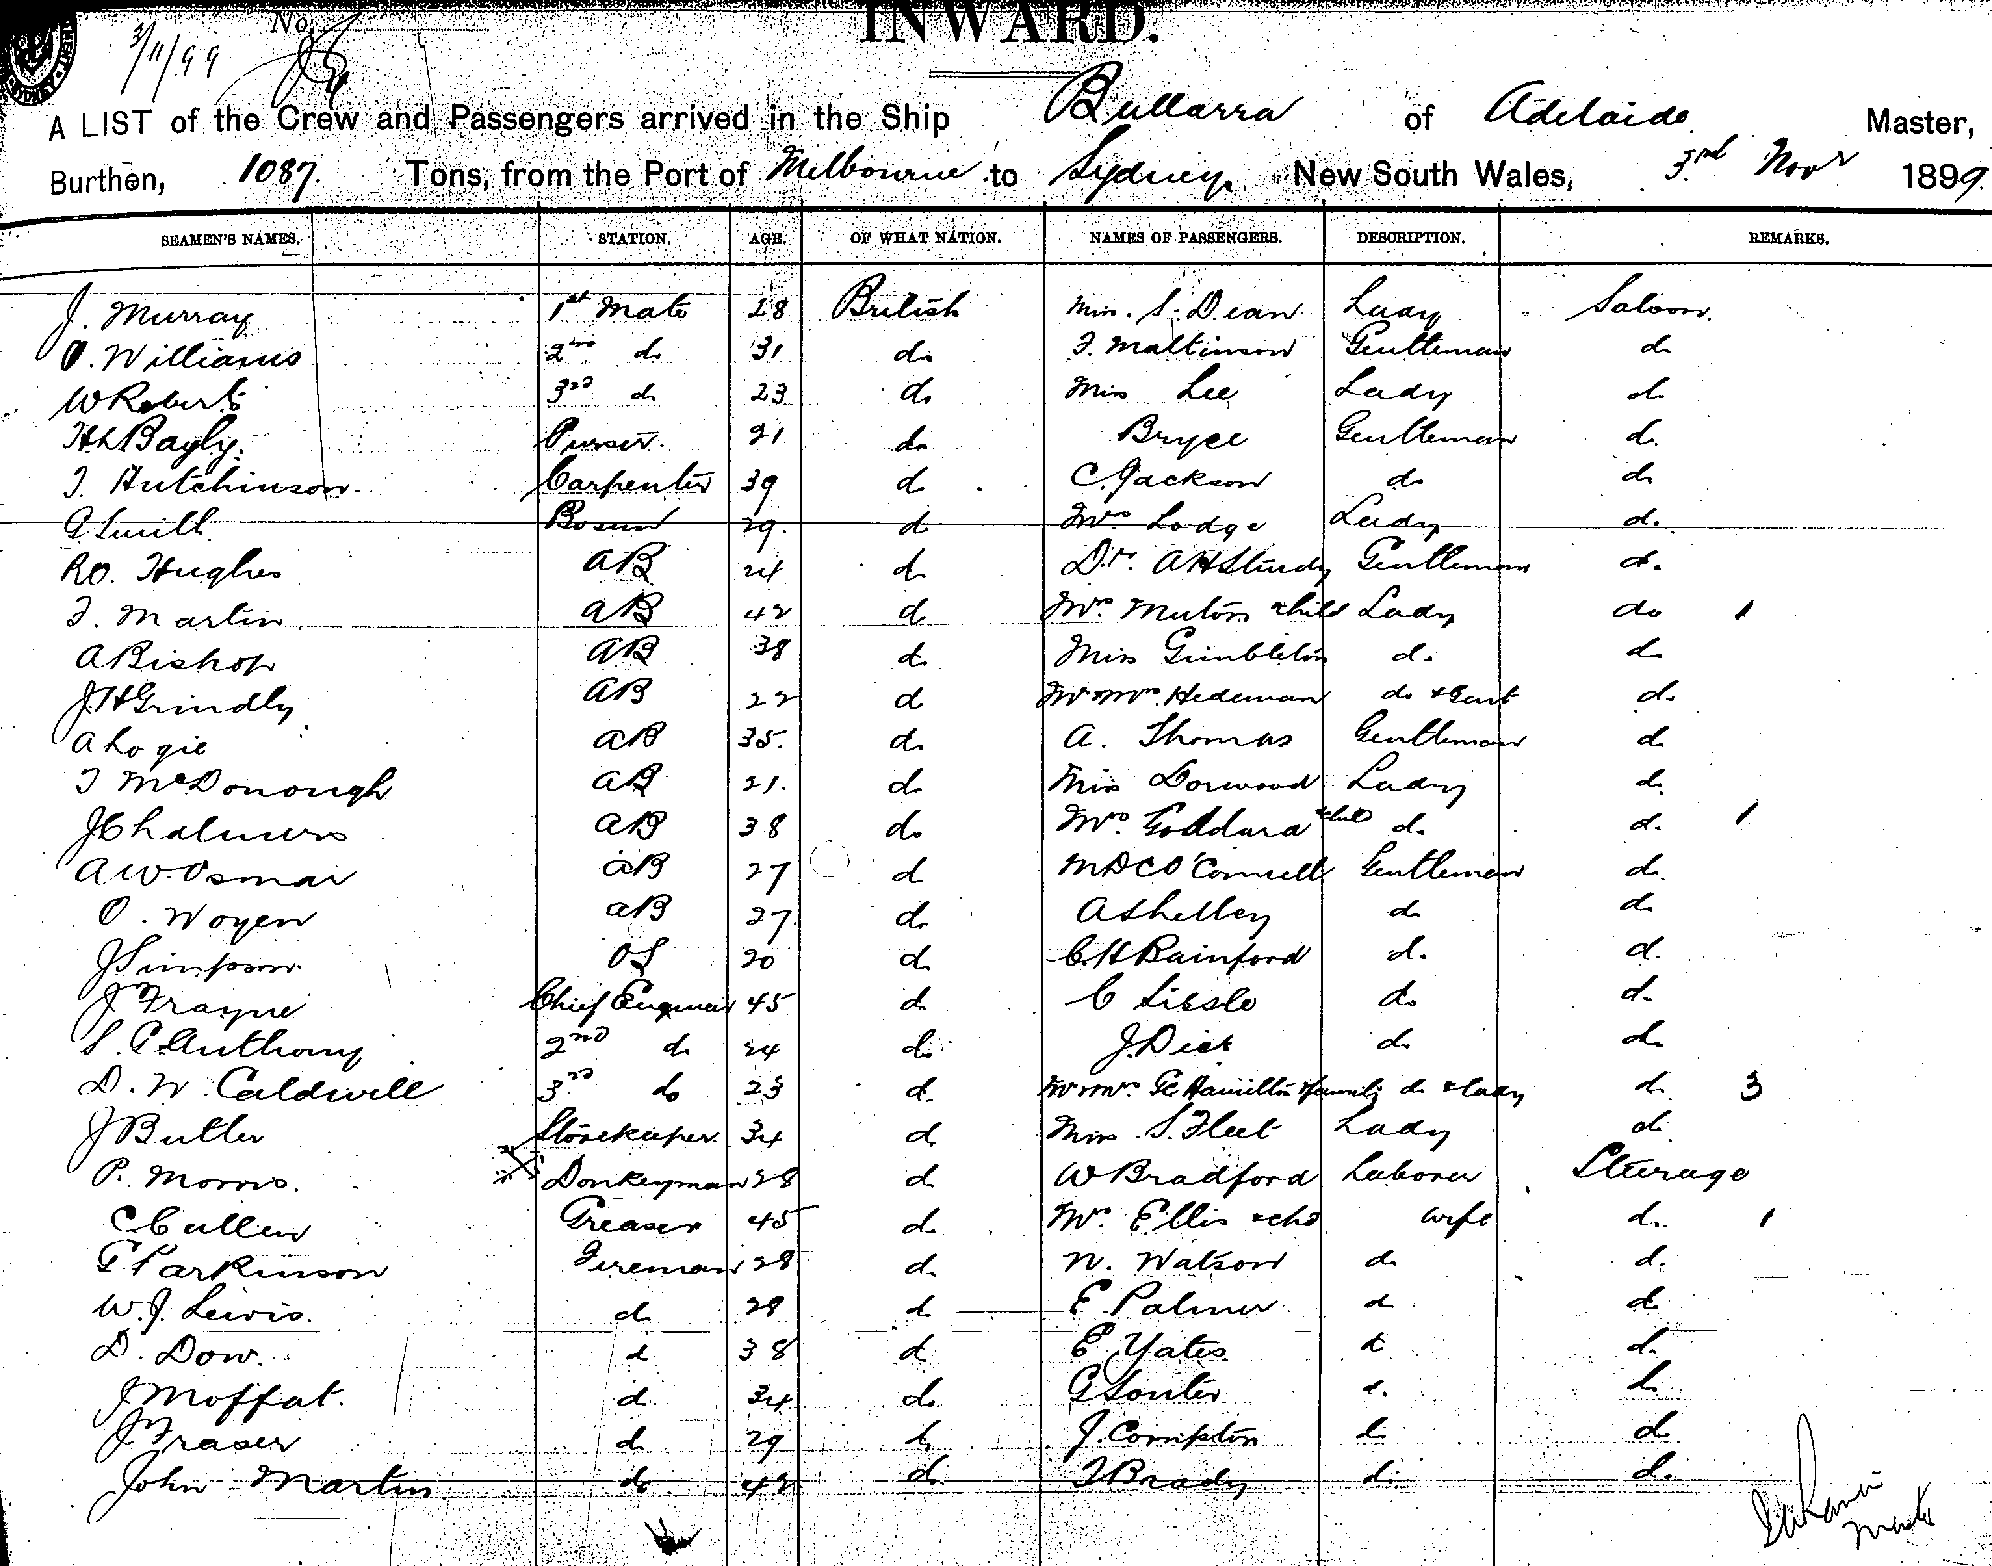 3/11/99 No.
INWARD.
A LIST of the Crew and Passengers arrived in the Ship Bullarra of Adelaide Master,
Burthen, 1087. Tons, from the Port of Melbourne to Sydney, New South Wales, 3rd Novr 1899.
SEAMEN'S NAMES. STATION. AGE. OF WHAT NATION. NAMES OF PASSENGERS. DESCRIPTION. REMARKS.
J. Murray 1st Mate 28 British Miss. S. Dean Lady Saloon.
O. Williams 2nd do 31 do F. Maltinson Gentleman do
W Roberts 3rd do 23 do Miss Lee Lady do
HL Bayly. Purser. 21 do Bryce Gentleman do
T. Hutchinson. Carpenter 39 do C. Jackson do do
G Smith Bosun 29. do Mrs Lodge Lady do
RO. Hughes AB 24 do Dr. AH Sturdy Gentleman do
T. Martin AB 42 do Mrs Muton & child Lady do 1
A Bishop AB 38 do Miss Gimbleton do do
J H Grindly AB 22 do Mr & Mrs. Hedeman do & Gent do
A Logie AB 35. do A. Thomas Gentleman do
T McDonough AB 21. do Miss Dorwood Lady do
J Chalmers AB 38 do Mrs. Goddard & child do do 1
A W. Osmar AB 27 do M D C O'Connell Gentleman do
O. Woyen AB 27. do A Shelley do do
J Simpson OS 20 do C. H Rainford do do
J Frayne Chief Engineer 45 do C do do
S. G. Anthony 2nd do 24 do J. Dick do do
D. W. Caldwell 3rd do 23 do Mr & Mrs. Ge Hamilton & family do & lady do 3
J Butler Storekeeper 34 do Miss. S. Fleet Lady do
P. Morris. Donkeyman 28 do W Bradford Laborer Steerage
C Cullen Greaser 45 do Mrs. Ellis & chd wife do 1
G Parkinson Fireman 28 do N. Watson do do
W. J. Lewis. do 28 do E Palmer do do
D. Dow. do 38 do E Yates do do
J Moffat. do 34 do G Souter do do
J Fraser do 29 do J. Compton do do
John Martin do 42 do T Brady do do